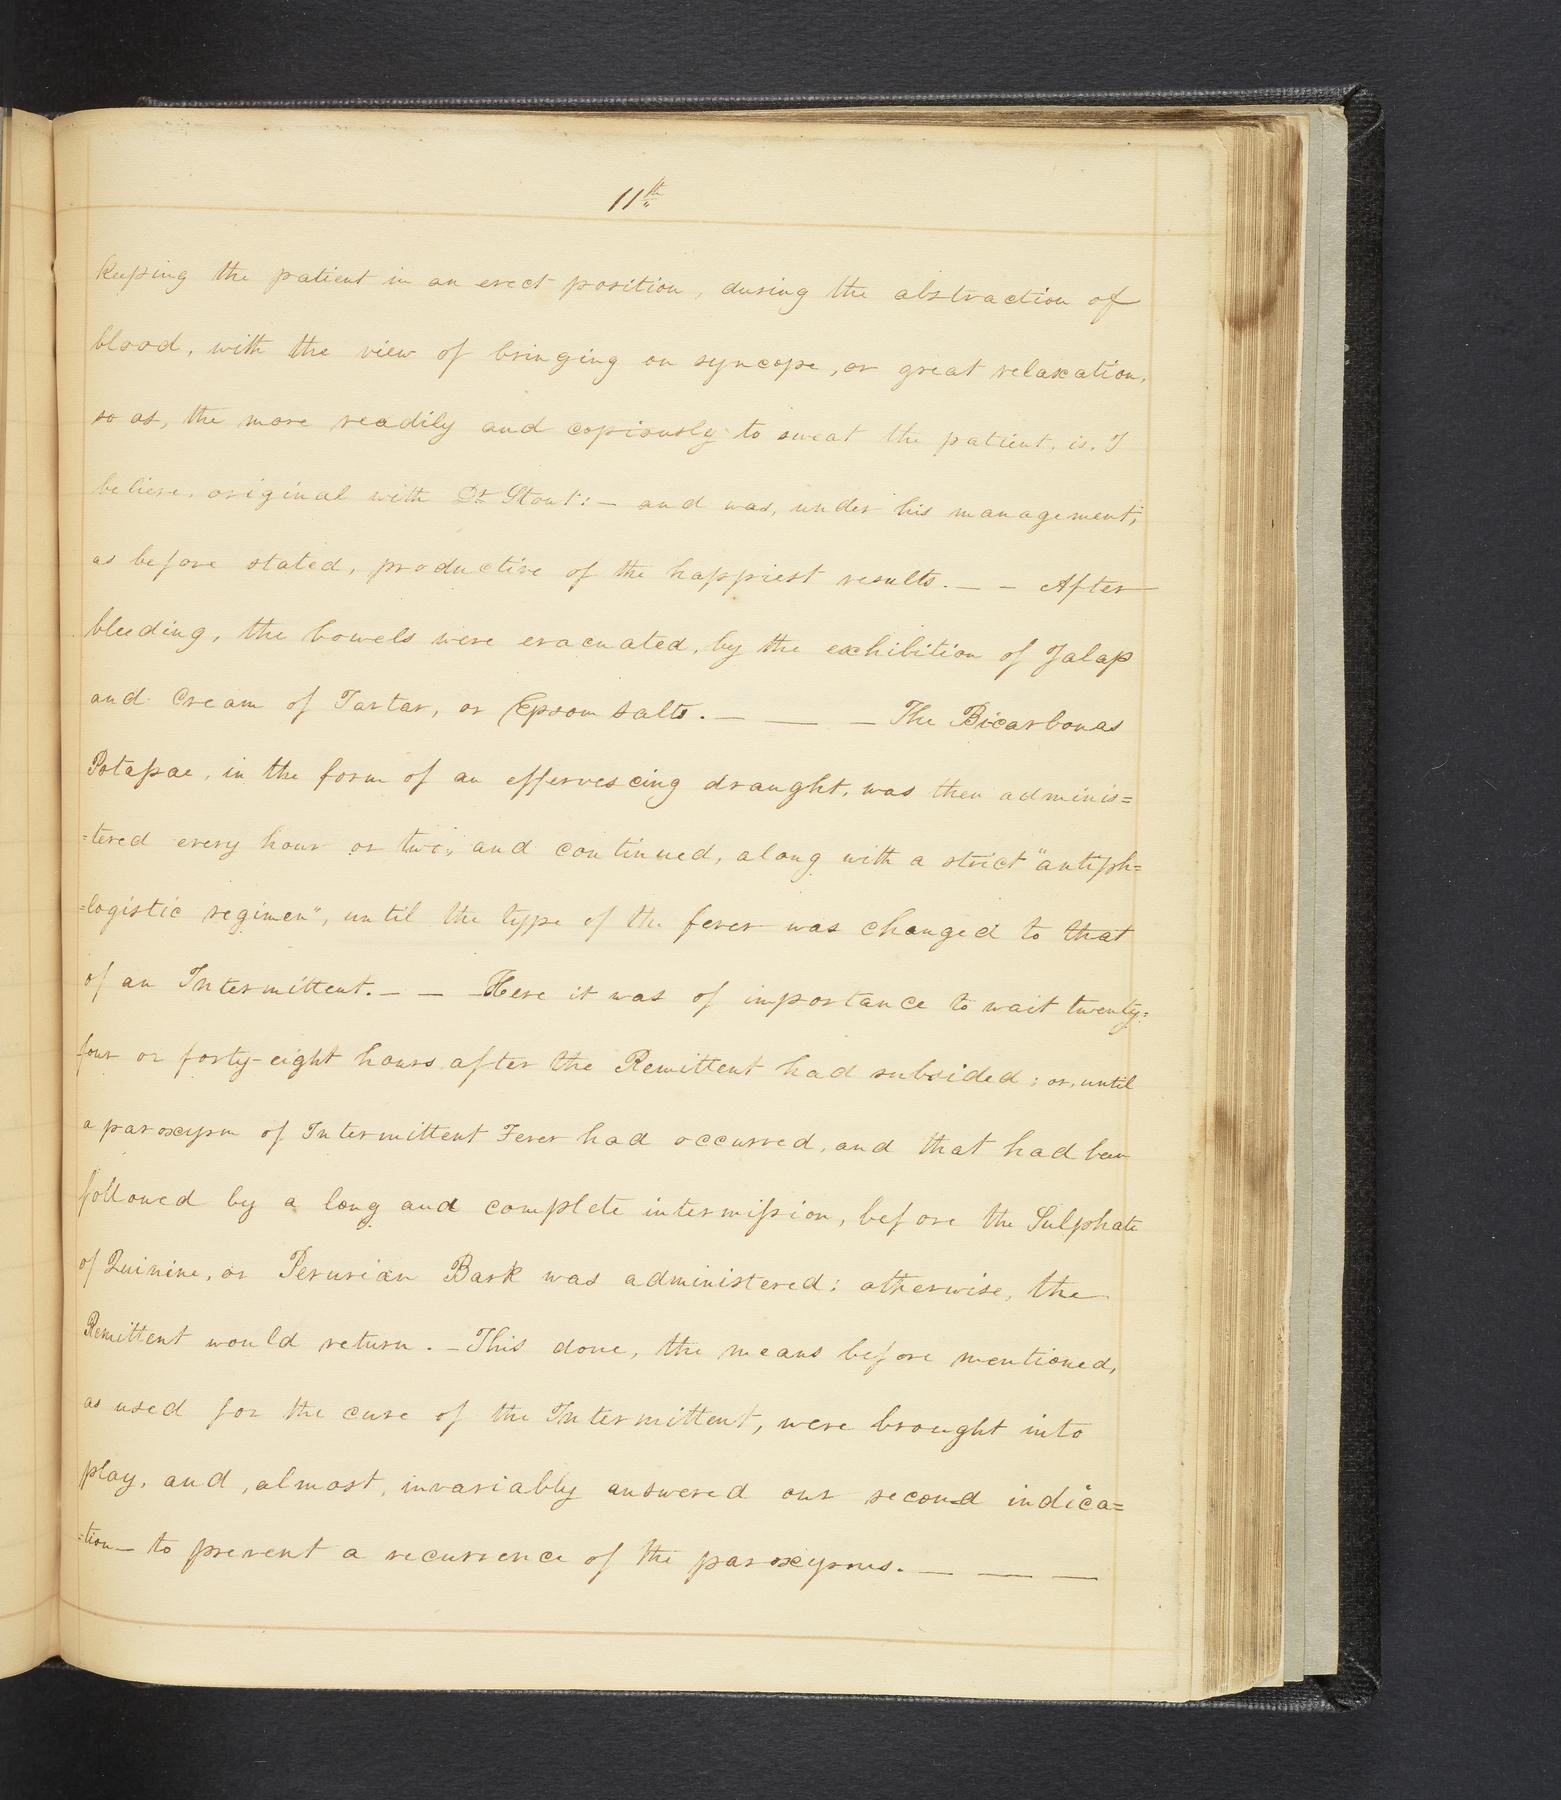 11th
keeping the patient in an erect position, during the abstraction of
blood, with the view of bringing on syncope, or great relaxation,
so as, the more readily and copiously to sweat the patient, is, I
believe, original with Dr Stout:— and was, under his management,
as before stated, productive of the happiest results.— — After
bleeding, the bowels were evacuated, by the exhibition of Jalap
and Cream of Tartar, or Epsom Salts.— — — The Bicarbonas
Potassae, in the form of an effervescing draught, was then adminis=
=tered every hour or two, and continued, along with a strict "antiph=
=logistic regimen", until the type of the fever was changed to that
of an Intermittent.— — —Here it was of importance to wait twenty=
four or forty-eight hours after the Remittent had subsided; or, until
a paroxysm of Intermittent Fever had occurred, and that had been
followed by a long and complete intermission, before the Sulphate
of Quinine, or Peruvian Bark was administered: otherwise, the
Remittent would return. —This done, the means before mentioned,
as used for the cure of the Intermittent, were brought into
play, and, almost, invariably answered our second indica=
=tion— to prevent a recurrence of the paroxysms. — — —